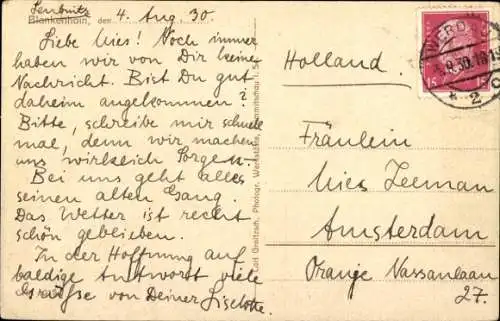 Leubnitz
Blankenhain, den 4. Aug. 30.
Liebe Mies! Noch immer
haben wir von Dir keine
Nachricht. Bist Du gut
daheim angekommen?
Bitte, schreibe mir schnell
mal, denn wir machen
uns wirklich Sorgen.
Bei uns geht alles
seinen alten Gang.
Das Wetter ist recht
schön geblieben.
In der Hoffnung auf
baldige Antwort viele
Grüsse von Deiner Liselotte.
Carl Greitzsch, Photogr. Werkstätte,
WERD
.8.30.18-19
* 2
15
Holland.
Fräulein
Mies Zeeman
Amsterdam
Oranje Nassaulaan
27.